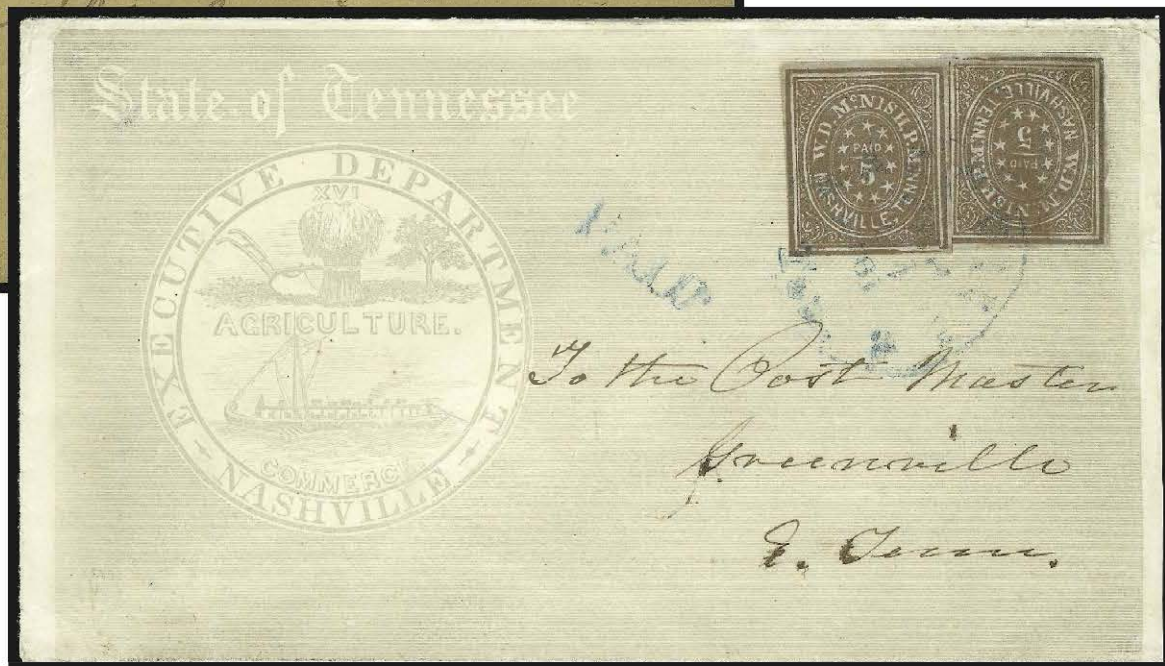 State of Tennessee
EXECUTIVE DEPARTMENT
XVI
AGRICULTURE.
COMMERCE
NASHVILLE
W.D. McNISH, P.M.
PAID
5
NASHVILLE, TENN.
W.D. McNISH, P.M.
PAID
5
NASHVILLE, TENN.
To the Post Master
Greenville
E. Tenn.